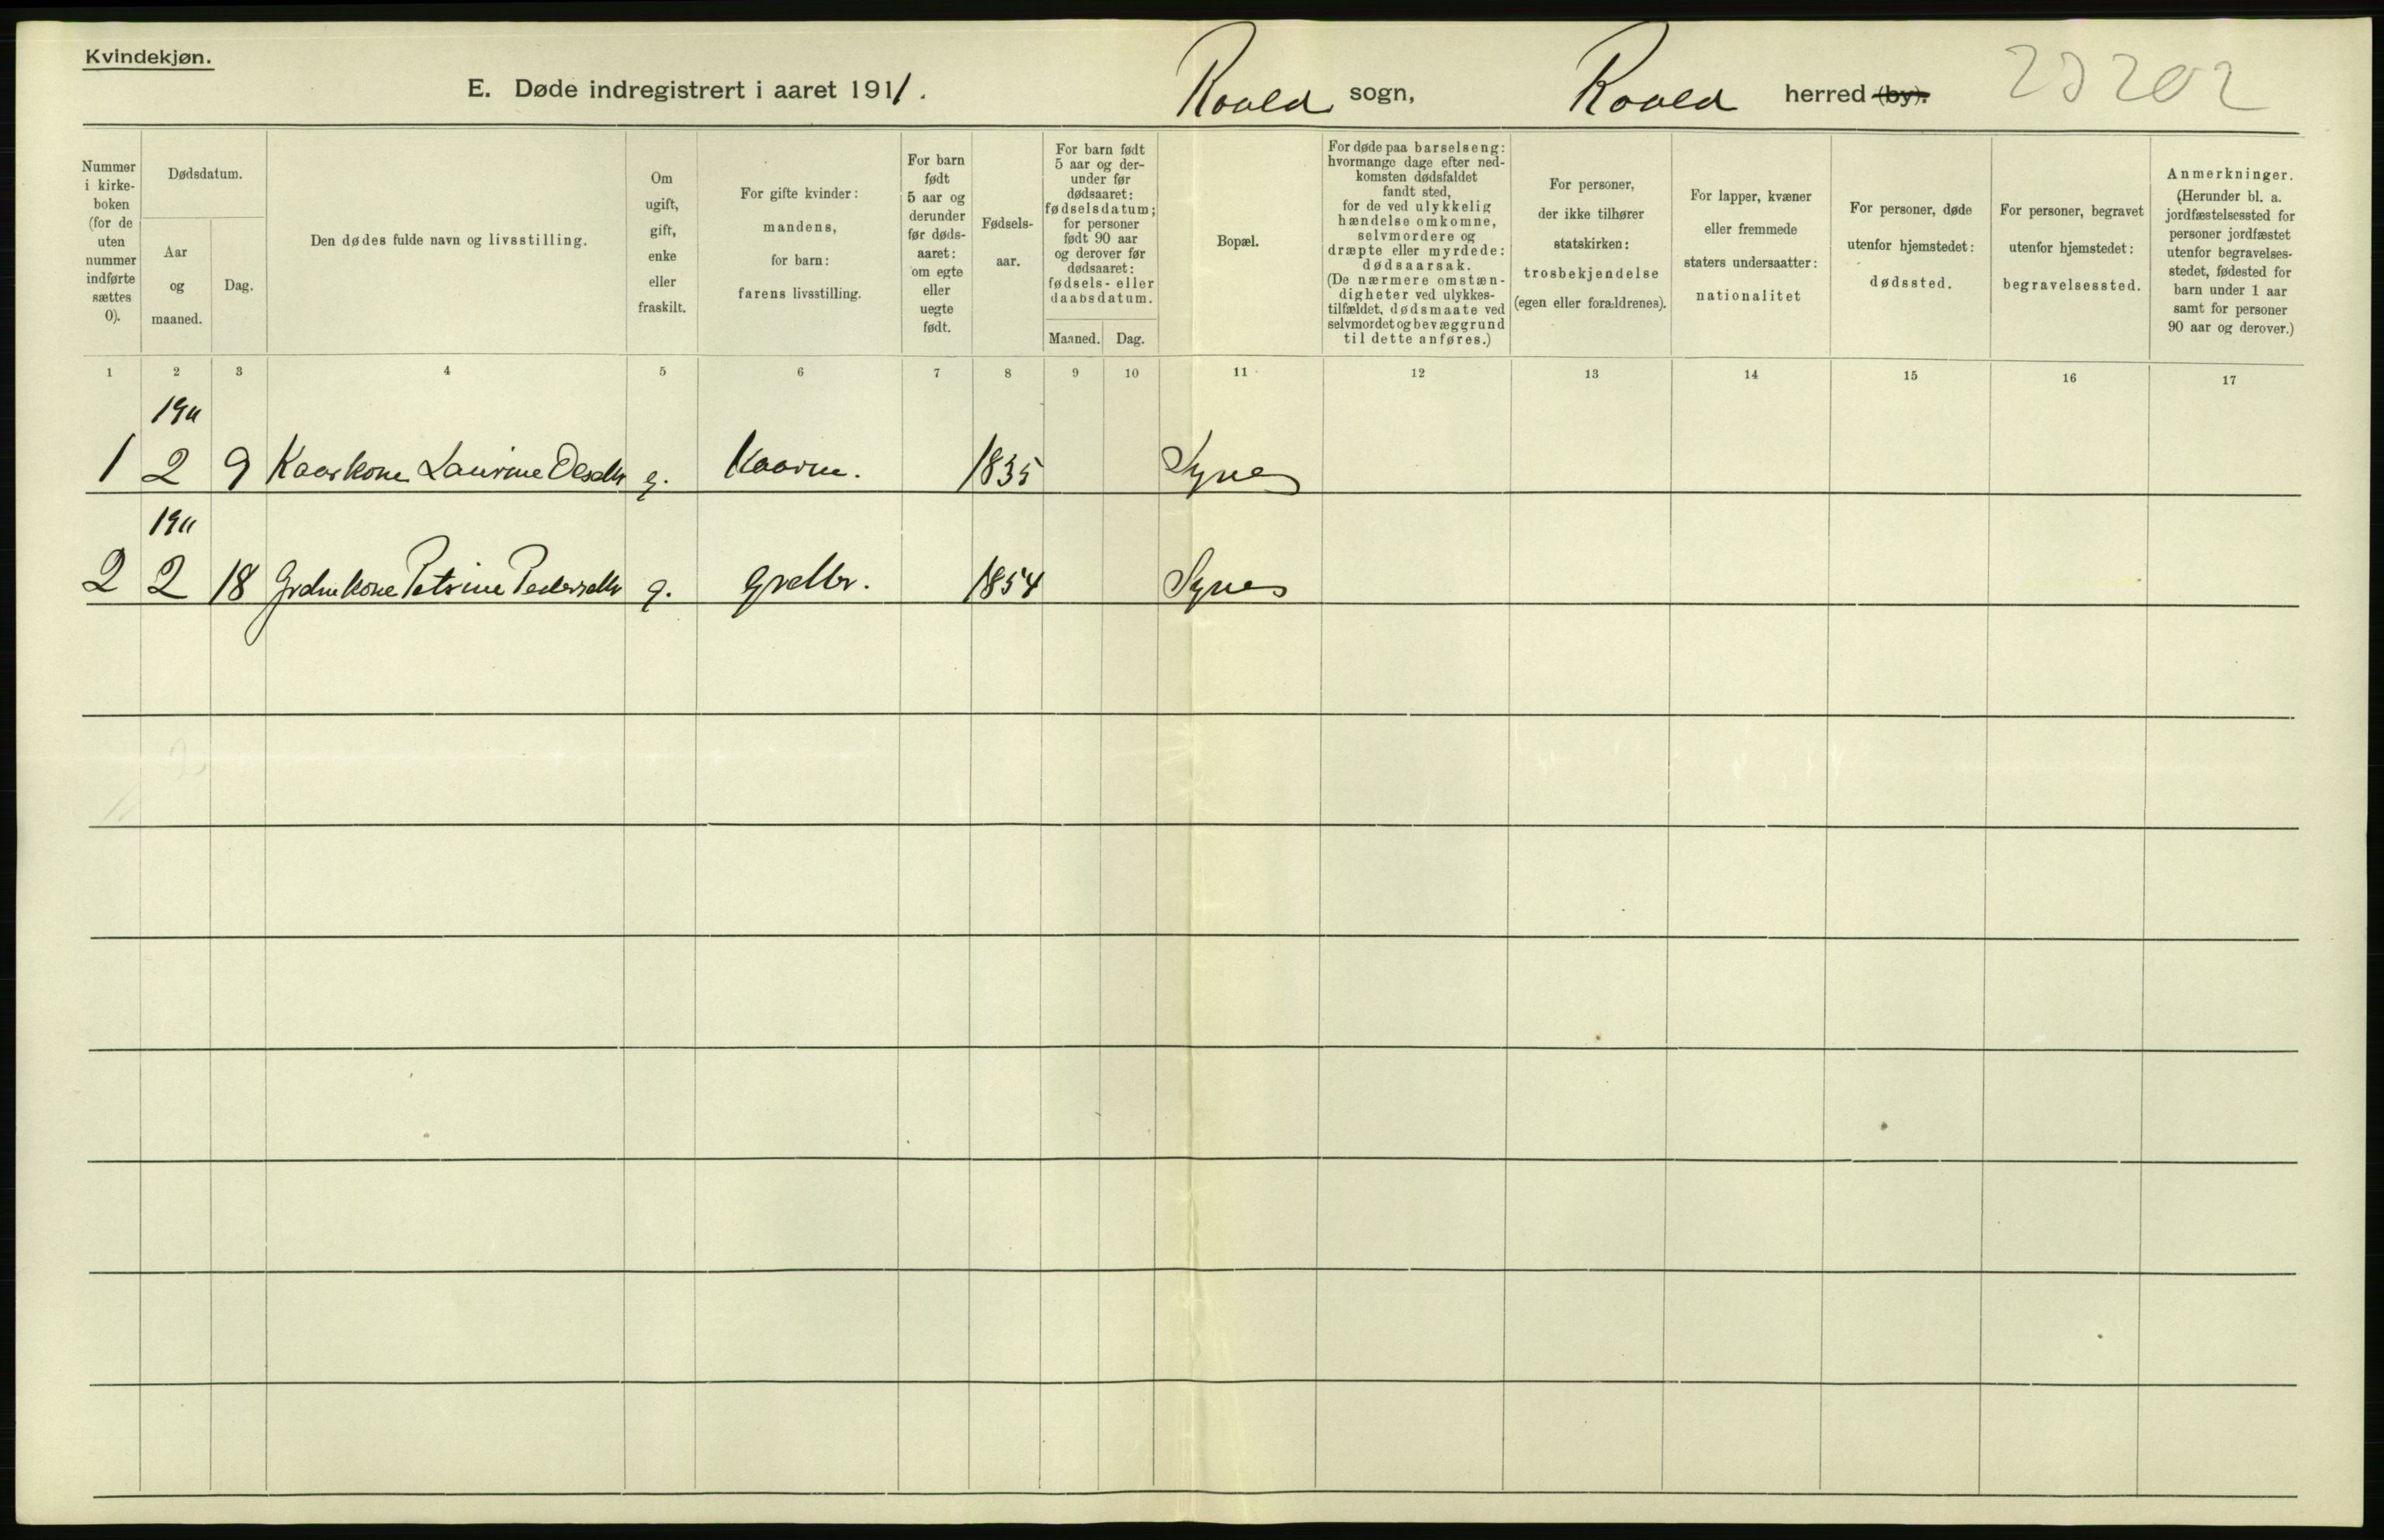 Kvindekjøn.
E. Døde indregistrert i aaret 1911. Roald sogn, Roald herred (by). 20202
Nummer i kirke-boken (for de uten nummer indførte sættes 0).
Dødsdatum.
Aar og maaned.
Dag.
Den dødes fulde navn og livsstilling.
Om ugift, gift, enke eller fraskilt.
For gifte kvinder: mandens, for barn: farens livsstilling.
For barn født 5 aar og derunder før døds-aaret: om egte eller uegte født.
Fødsels-aar.
For barn født 5 aar og der-under før dødsaaret: fødselsdatum; for personer født 90 aar og derover før dødsaaret: fødsels- eller daabsdatum.
Maaned. Dag.
Bopæl.
For døde paa barselseng: hvormange dage efter ned-komsten dødsfaldet fandt sted, for de ved ulykkelig hændelse omkomne, selvmordere og dræpte eller myrdede: dødsaarsak. (De nærmere omstæn-digheter ved ulykkes-tilfældet, dødsmaate ved selvmordet og bevæggrund til dette anføres.)
For personer, der ikke tilhører statskirken: trosbekjendelse (egen eller forældrenes).
For lapper, kvæner eller fremmede staters undersaatter: nationalitet
For personer, døde utenfor hjemstedet: dødssted.
For personer, begravet utenfor hjemstedet: begravelsessted.
Anmerkninger. (Herunder bl. a. jordfæstelsessted for personer jordfæstet utenfor begravelses-stedet, fødested for barn under 1 aar samt for personer 90 aar og derover.)
1 2 3 4 5 6 7 8 9 10 11 12 13 14 15 16 17
1911
1 2 9 Kaarkone Laurine Olsdtr g. Kaarm. 1835 Synes
1911
2 2 18 Grdmkone Petrine Pedersdtr g. Grdbr. 1854 Synes